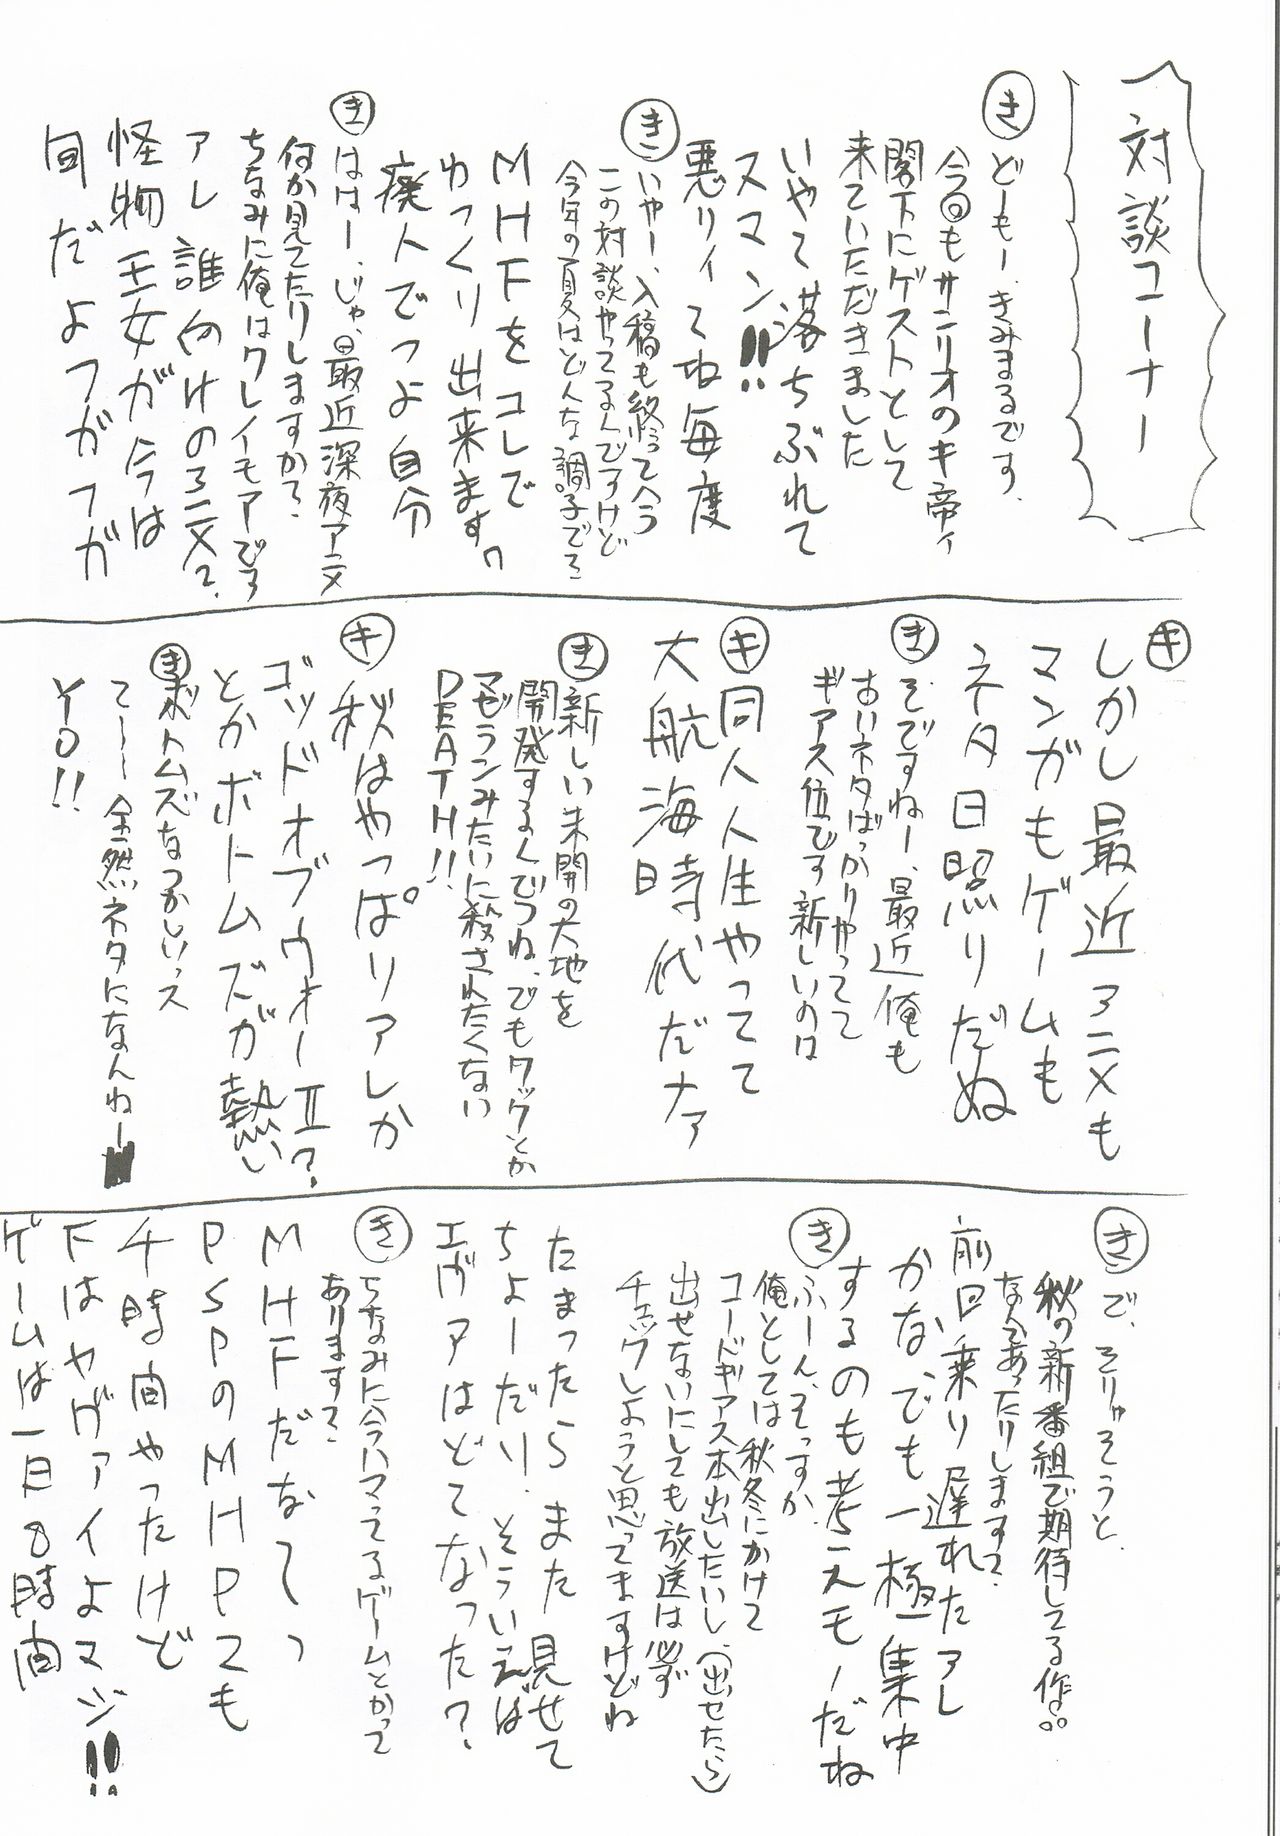 対談コーナー
き どーもー、きみまるです、
今回もサンリオのキ帝ィ
閣下にゲストとして
来ていただきました
いやて落ちぶれて
スマン!!
悪リィてね毎度
き いやー、入稿も終って今
この対談やってるんですけど
今年の夏はどんな調子でスか
MHFをコレで
ゆっくり出来ます。
廃人でつよ自分
き はは—、じゃ、最近深夜アニメ
何か見てたりしますか?
ちなみに俺はクレイモアです
アレ誰向けのアニメ?
怪物王女が今は
旬だよフガフガ
キ しかし最近アニメも
マンガもゲームも
ネタ日照りだぬ
き そですねー、最近俺も
古いネタばっかりやってて
ギアス位です新しいのは
キ 同人人生やってて
大航海時代だナァ
き 新しい未開の大地を
開発するんでつね、でもクックとか
マゼランみたいに殺されたくない
DEATH!!
キ 秋はやっぱリアレか
ゴッドオブウォーⅡ?
とかボトムズが熱い
き ボトムズなつかしいっス
て〜〜全然ネタになんねー
YO!!
き で、そりゃそうと、
秋の新番組で期待してる作品
なんてあったりしますて?
前回乗り遅れたアレ
かな、でも一極集中
するのも考えモノだね
き ふーん、そっすか、
俺としては秋冬にかけて
コードギアス本出したいし、(出せたら)
出せないにしても放送は必ず
チェックしようと思ってますけどね
たまったらまた見せて
ちょーだい、そういえば
エヴァはどてなった?
き ちなみに今ハマってるゲームとかって
あります?
MHFだなてっ
PSPのMHP2も
千時間やったけど
Fはヤヴァイよマジ!!
ゲームは一日8時間